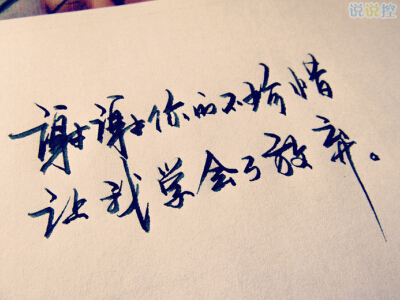 说说控
谢谢你的不珍惜
让我学会了放弃。